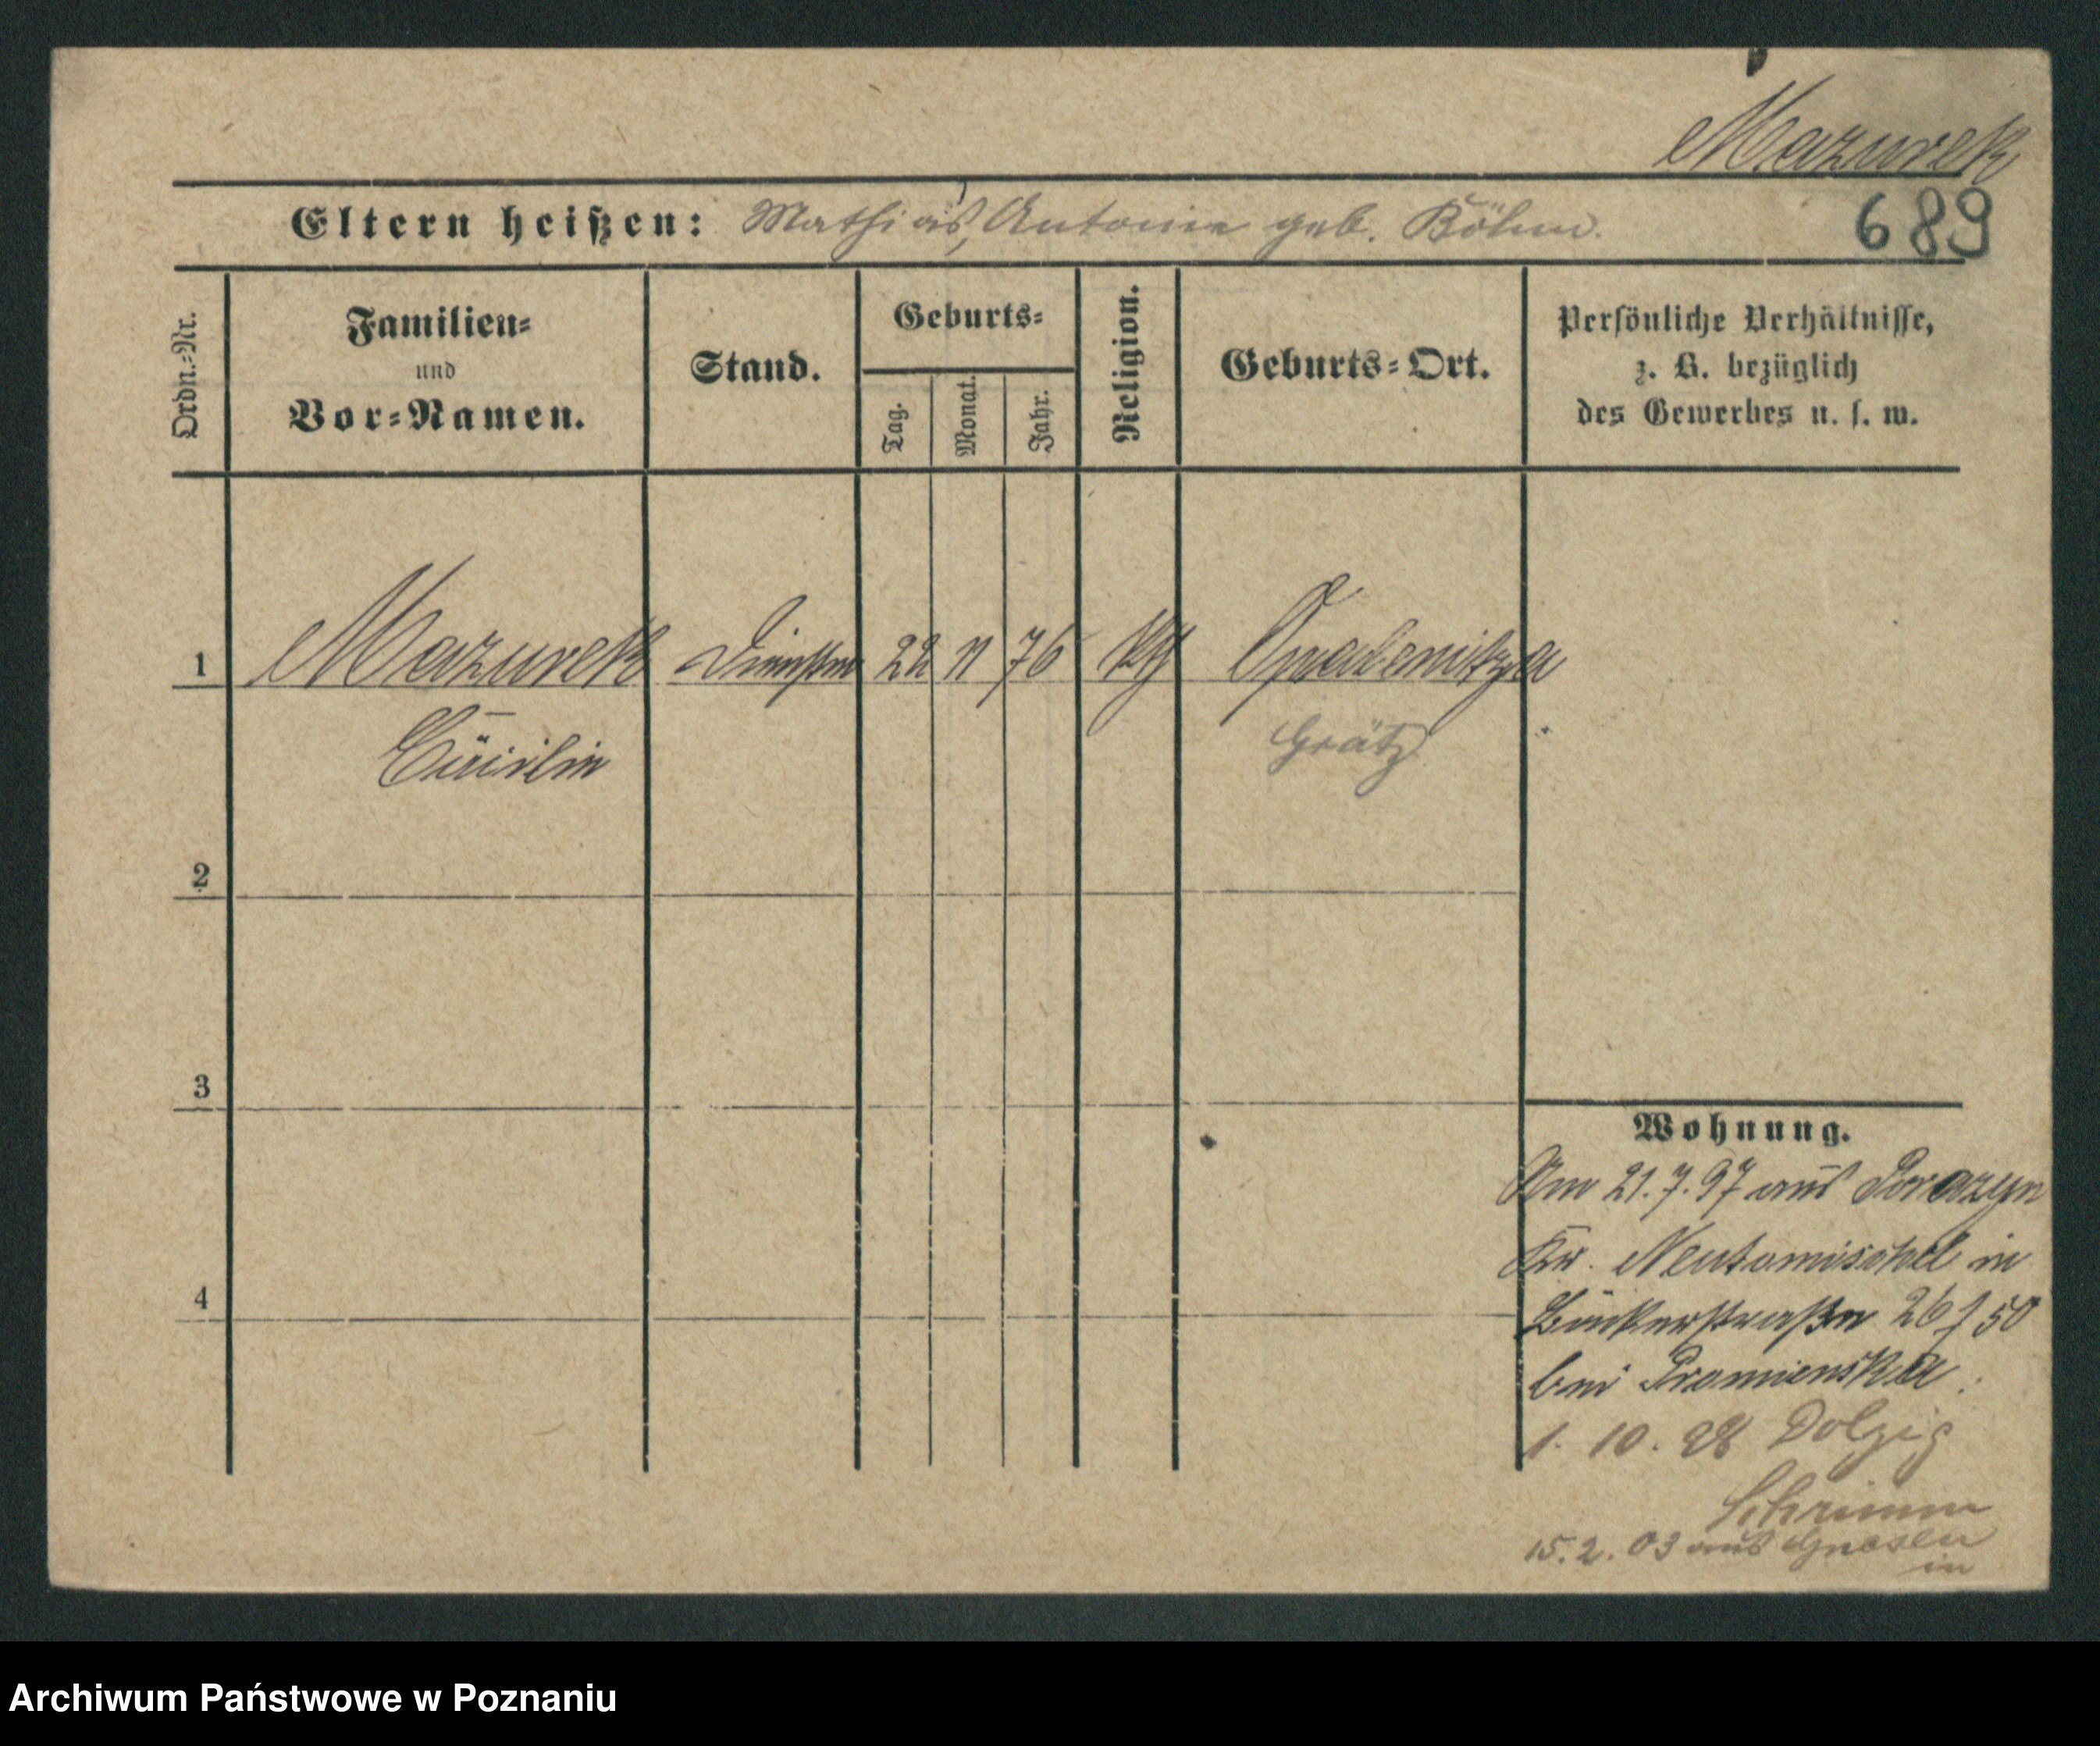 Mazurek
Eltern heißen: Mathias, Antonie geb. Böhm.
689
Ordn.-Nr.
Familien- und Vor-Namen.
Stand.
Geburts-
Tag.
Monat.
Jahr.
Religion.
Geburts-Ort.
Persönliche Verhältnisse,
z. B. bezüglich
des Gewerbes u. s. w.
1 Mazurek 22 11 76 kth Opalenitza
Cäcilie
Grätz
2
3
4
Wohnung.
Am 21.7.97 aus Porazyn
Kr. Neutomischel in
Bäckerstraße 26 f 50
bei Promienska
1. 10. 98 Dolzig
Schrimm
15. 2. 03 aus Gnesen
in
Archiwum Państwowe w Poznaniu